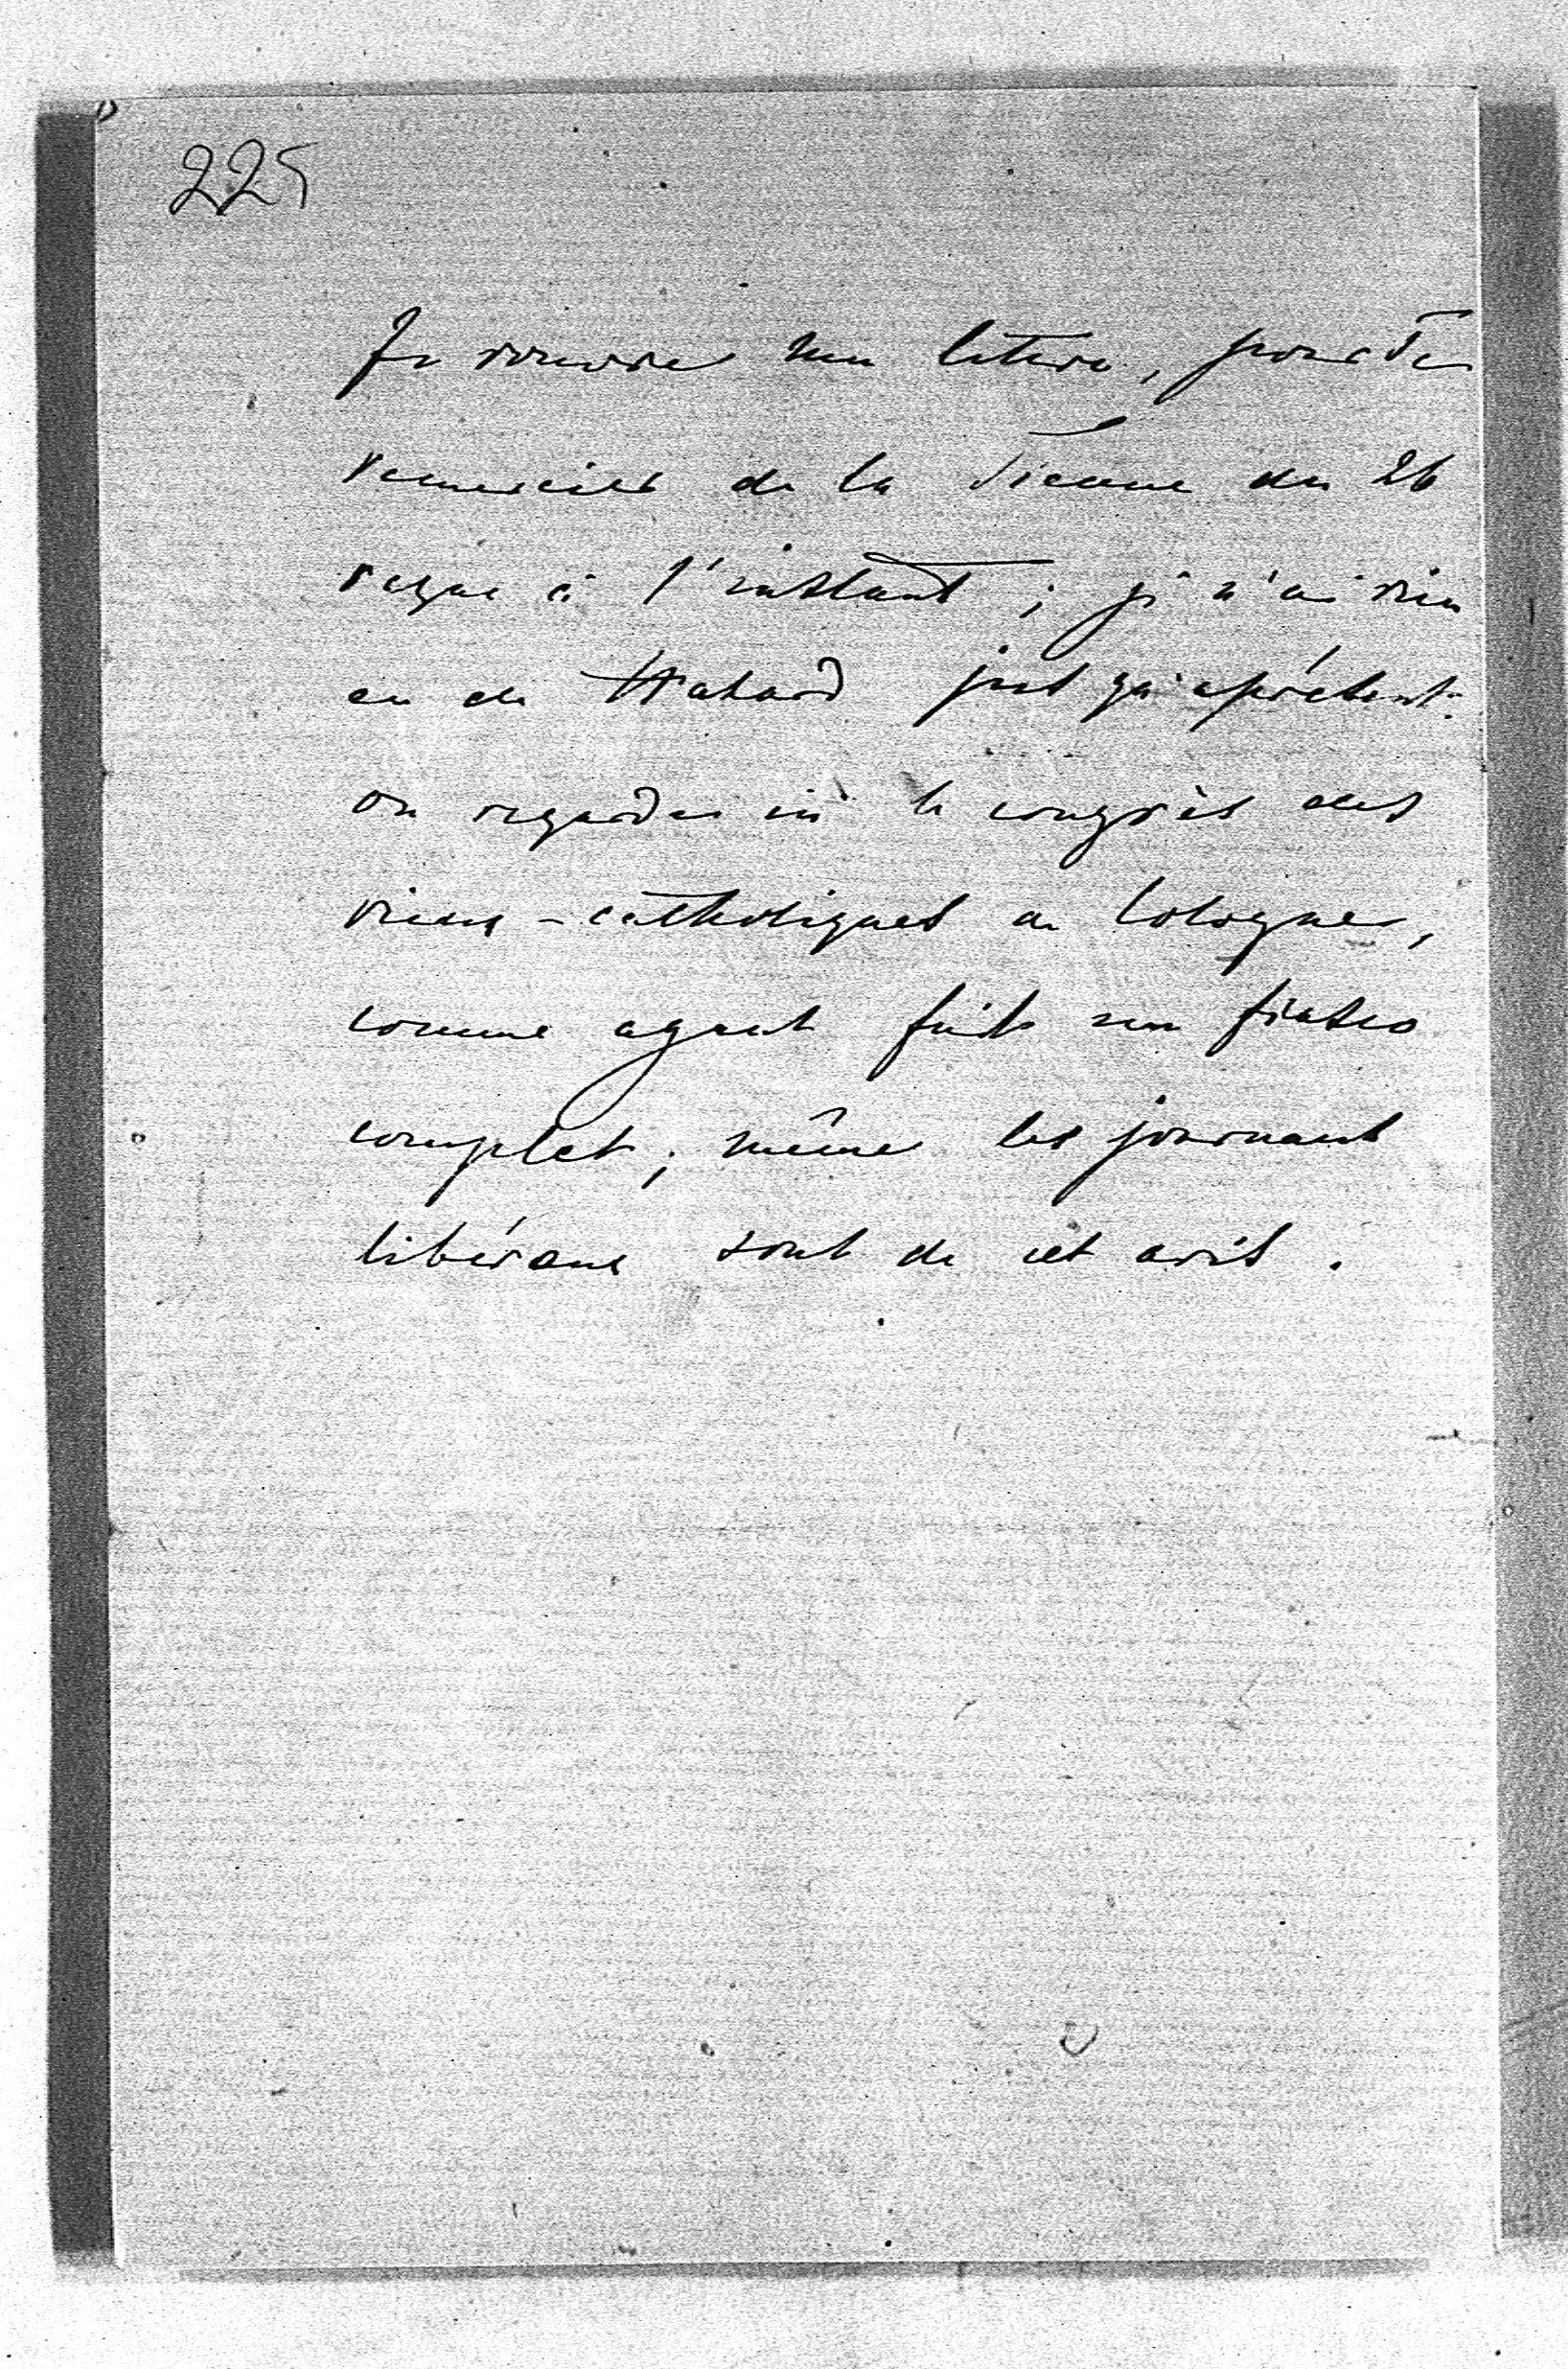 225
Je rouvre ma lettre, pour Te
remercier de la Tienne du 26
reçue à l'instant ; je n'ai rien
eu de jusqu'aprésent.
on regarde ici le congrès des
vieux-catholiques a Cologne,
comme ayant fait un fiasco
complet; même les journaux
libéraux sont de cet avis.